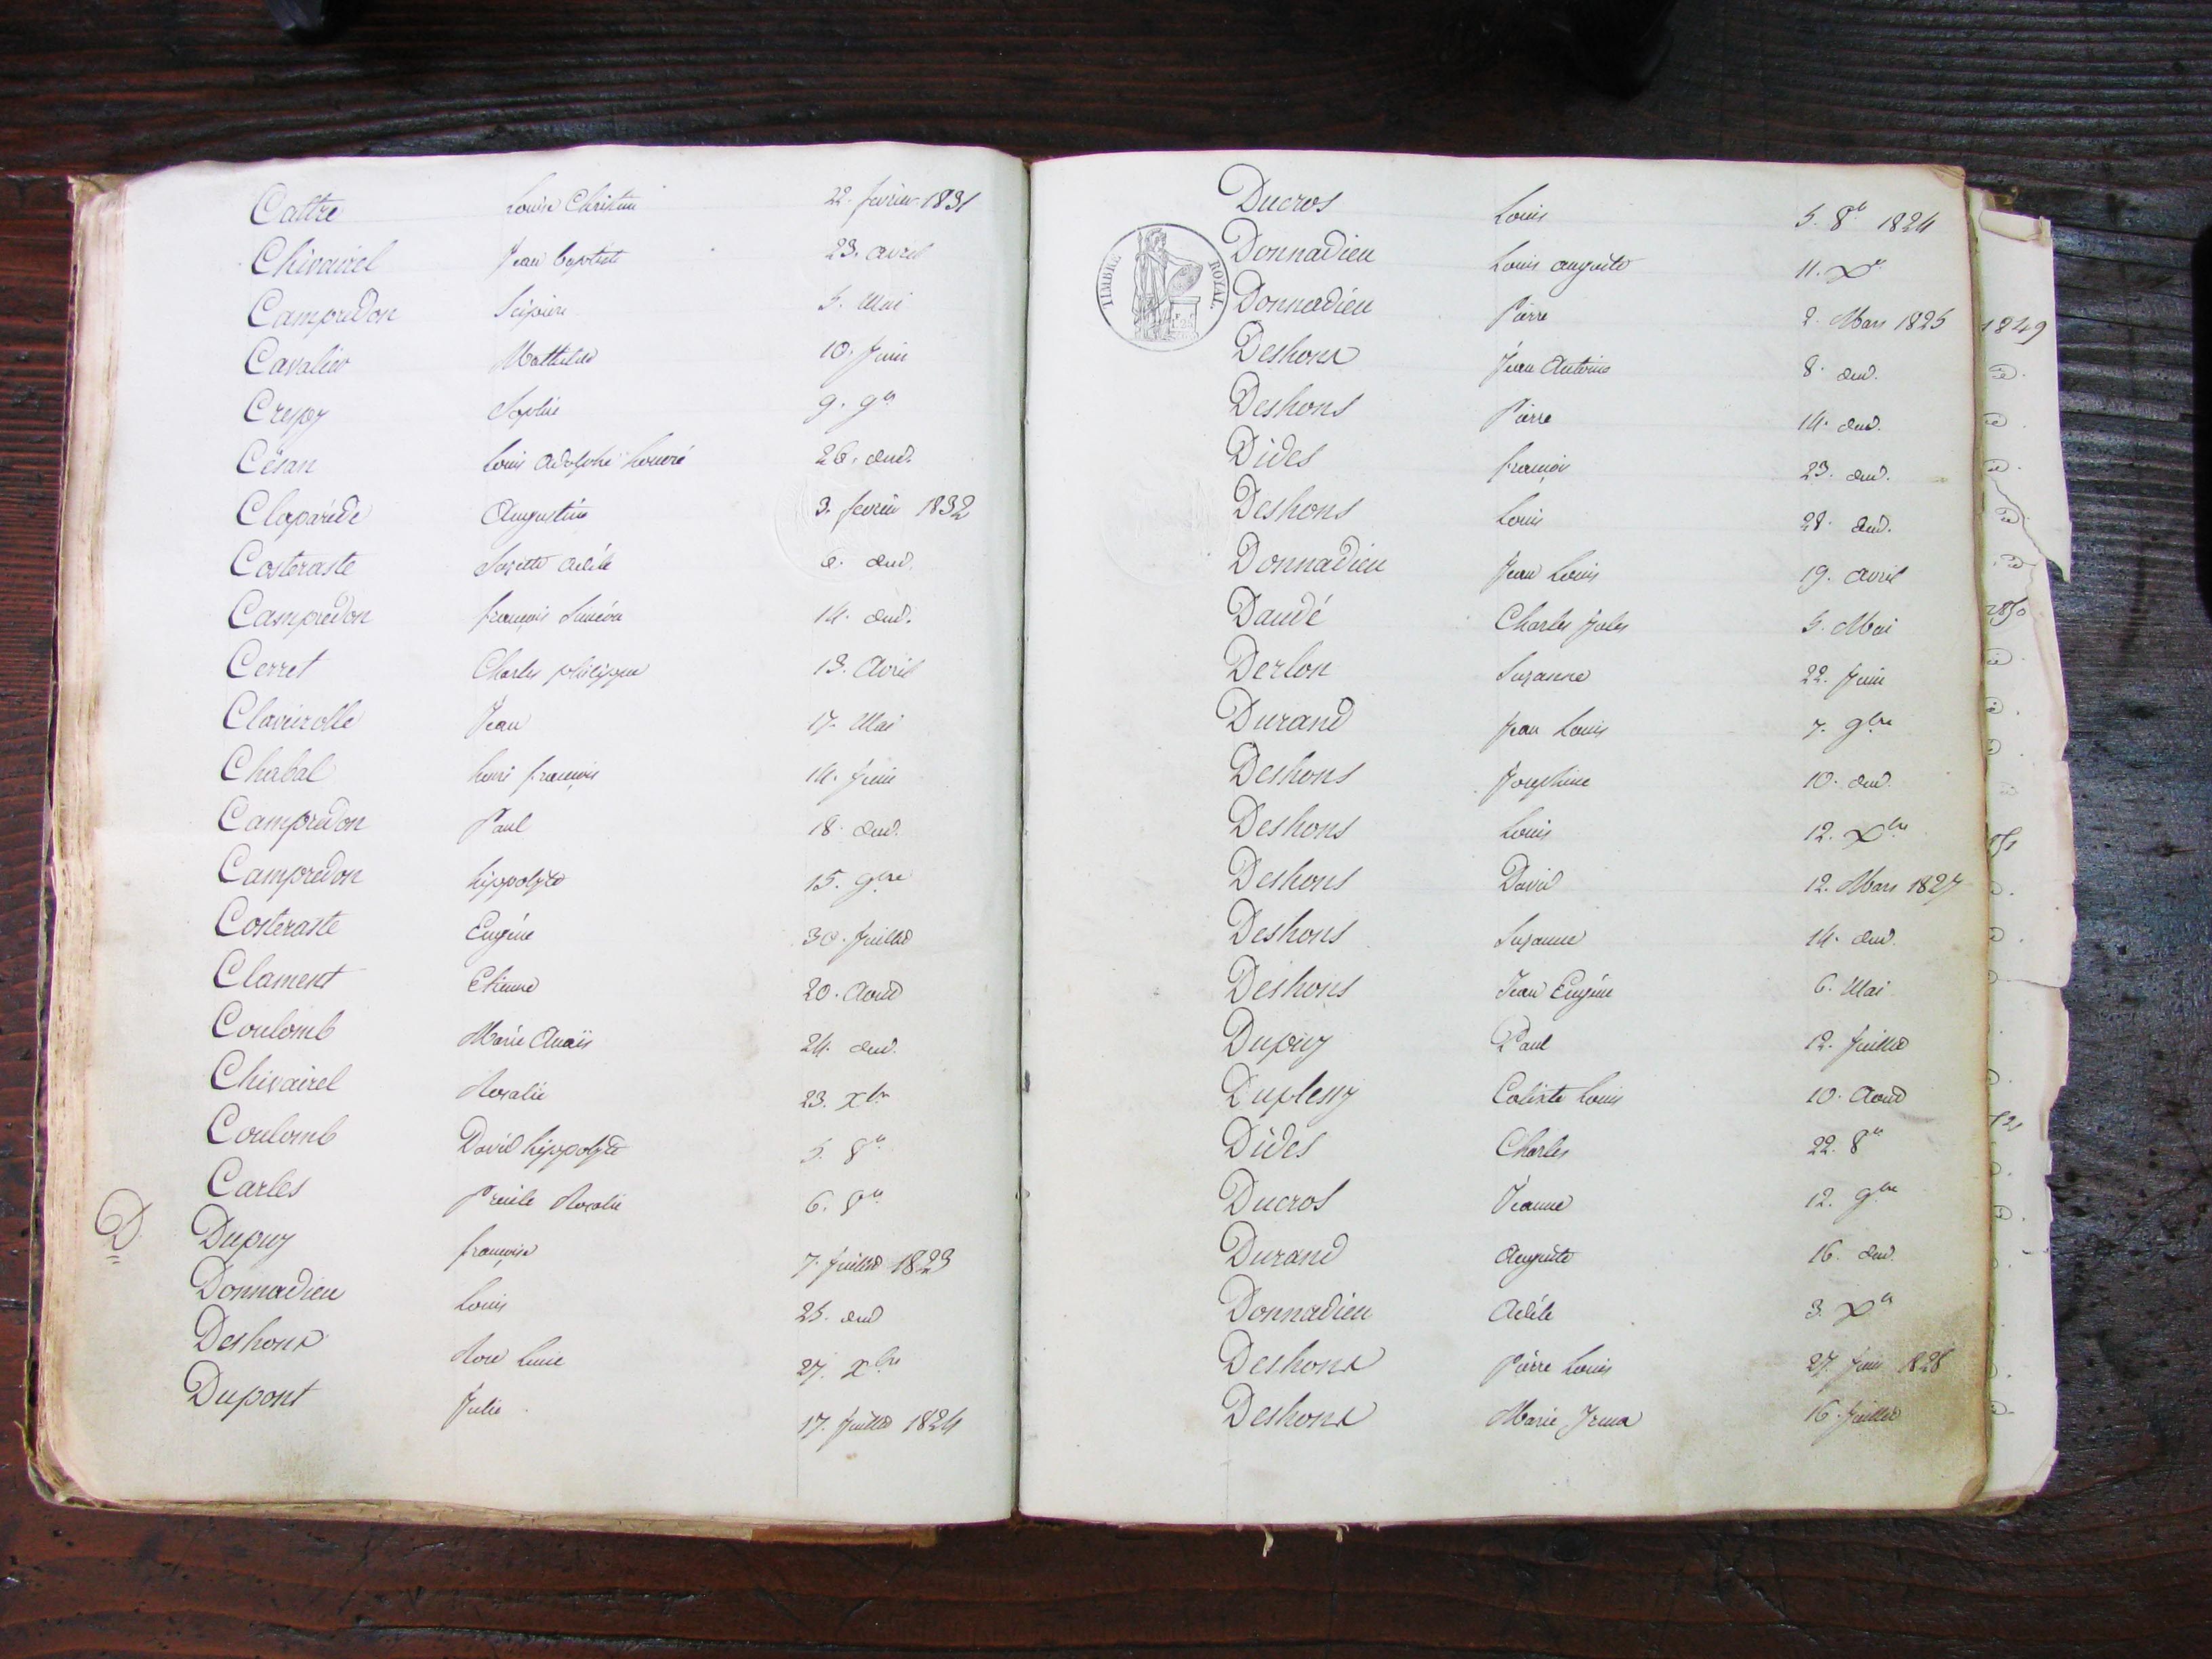 Cattre Louise Christine 22. fevrier 1831
Chivairel Jean baptiste 23. avril
Campredon Scipion 5. Mai
Cavalier Mathilde 10. Juin
Crespy Sophie 9. 9bre
Césan Louis Adolphe honoré 26. dud.
Claparéde Augustine 3. fevrier 1832
Costeraste Suzette Adéle 6. dud.
Campredon françois 14. dud.
Cerret Charles philippe 13. Avril
Claveirolle Jean 17. Mai
Chabal henri françois 14. Juin
Campredon Paul 18. dud.
Campredon hippolyte 15. 9bre
Costeraste Eugéne 30. Juillet
Clament Etienne 20. Aout
Coulomb Marie Anaïs 24. dud.
Chivairel Rosalie 23. Xbre
Coulomb David hippolyte 5. 8bre
Carles Rosalie 6. 8bre
D. Dupuy françoise 7. Juillet 1823
Donnadieu Louis 25. dud
Deshons Rose Lucie 27. Xbre
Dupont Julie 17. Juillet 1824
Ducros Louis 5. 8bre 1824
TIMBRE ROYAL
Donnadieu Louis auguste 11. Xbre
Donnadieu Pierre 2. Mars 1825
Deshons Jean Antoine 8. dud.
Deshons Pierre 14. dud.
Dides françois 23. dud.
Deshons Louis 28. dud.
Donnadieu Jean Louis 19. avril
Daudé Charles Jules 5. Mai
Derlon Suzanne 22. Juin
Durand Jean Louis 7. 9bre
Deshons Josephine 10. dud.
Deshons Louis 12. Xbre
Deshons David 12. Mars 1827
Deshons Suzanne 14. dud.
Deshons Jean Eugéne 6. Mai
Dupuy Paul 12. Juillet
Duplessy Calixte Louis 10. Aout
Dides Charles 22. 8bre
Ducros Jeanne 12. 9bre
Durand Auguste 16. dud.
Donnadieu Adéle 3. Xbre
Deshons Pierre Louis 27. Juin 1828
Deshons Marie Irma 16. Juillet
1849
1850